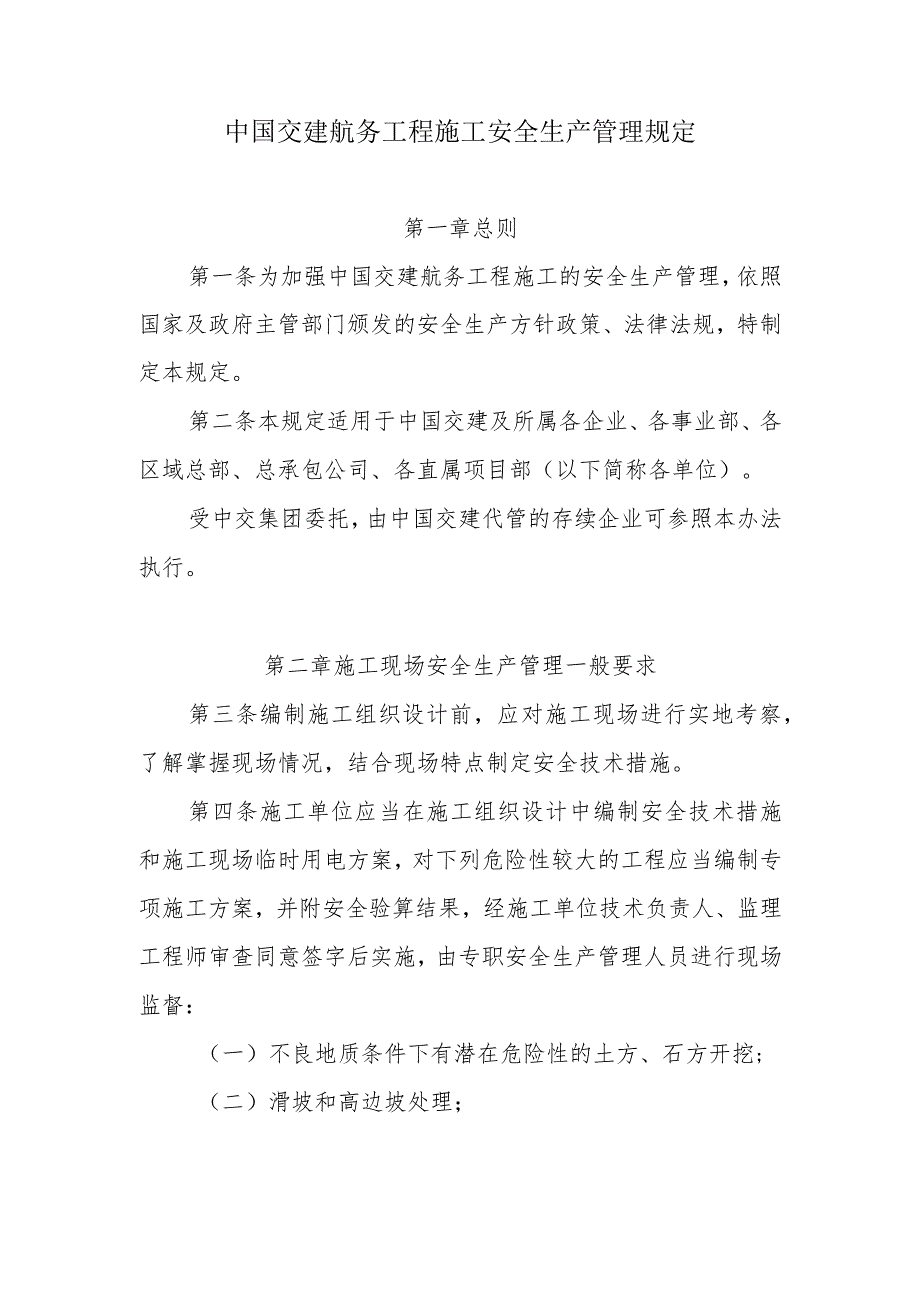 中国交建航务工程施工安全生产管理规定
第一章总则
第一条为加强中国交建航务工程施工的安全生产管理,依照
国家及政府主管部门颁发的安全生产方针政策、法律法规,特制
定本规定。
第二条本规定适用于中国交建及所属各企业、各事业部、各
区域总部、总承包公司、各直属项目部(以下简称各单位)。
受中交集团委托,由中国交建代管的存续企业可参照本办法
执行。
第二章施工现场安全生产管理一般要求
第三条编制施工组织设计前,应对施工现场进行实地考察,
了解掌握现场情况,结合现场特点制定安全技术措施。
第四条施工单位应当在施工组织设计中编制安全技术措施
和施工现场临时用电方案,对下列危险性较大的工程应当编制专
项施工方案,并附安全验算结果,经施工单位技术负责人、监理
工程师审查同意签字后实施,由专职安全生产管理人员进行现场
监督:
(一)不良地质条件下有潜在危险性的土方、石方开挖;
(二)滑坡和高边坡处理;